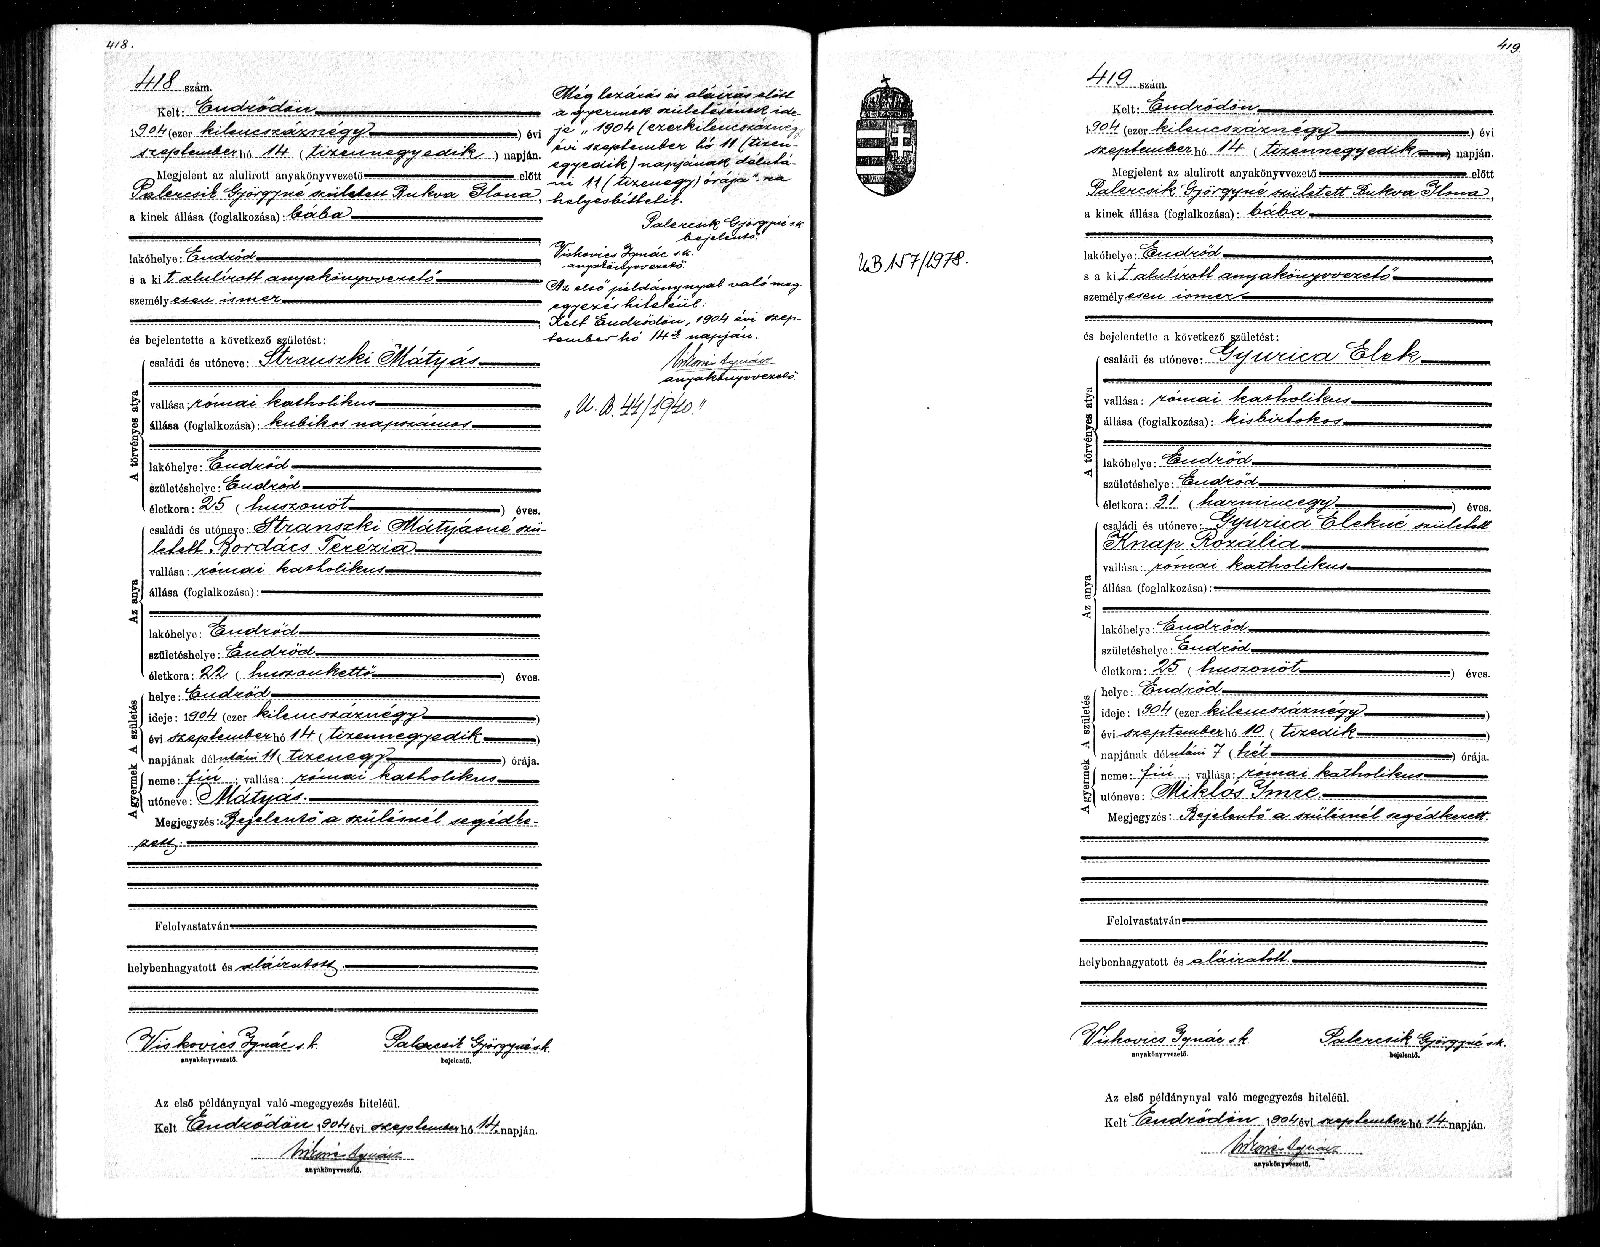 418.
418 szám.
Kelt: Endrődön
1904 (ezer kilenczszáznégy) évi
szeptember hó 14 (tizennegyedik) napján.
Megjelent az alulirott anyakönyvvezető előtt
Palercsik Györgyné született Bukva Ilona,
a kinek állása (foglalkozása): bába
lakóhelye: Endrőd
s a kit alulírott anyakönyvvezető
személyesen ismer
és bejelentette a következő születést:
A törvényes atya
családi és utóneve: Stranszki Mátyás
vallása: római katholikus
állása (foglalkozása): kubikos napszámos
lakóhelye: Endrőd
születéshelye: Endrőd
életkora: 25 (huszonöt) éves.
Az anya
családi és utóneve: Stranszki Mátyásné szü-
letett Bordács Terézia
vallása: római katholikus
állása (foglalkozása):
lakóhelye: Endrőd
születéshelye: Endrőd
életkora: 22 (huszonkettő) éves.
A gyermek A születés
helye: Endrőd
ideje: 1904 (ezer kilenczszáznégy)
évi szeptember hó 14 (tizennegyedik)
napjának délutáni 11 (tizenegy) órája.
neme: fiú; vallása: római katholikus
utóneve: Mátyás.
Megjegyzés: Bejelentő a szülésnél segédke-
zett.
Felolvastatván
helybenhagyatott és aláiratott.
Viskovics Ignác s.k. Palercsik Györgyné s.k.
anyakönyvvezető. bejelentő.
Az első példánynyal való megegyezés hiteléül.
Kelt Endrődön, 1904 évi szeptember hó 14. napján.
Viskovics Ignácz
anyakönyvvezető.
Még lezárás és aláírás előtt
a gyermek születésének ide-
je „1904 (ezerkilenczszáznégy)
évi szeptember hó 11 (tizen-
egyedik) napjának délutá-
ni 11 (tizenegy) órája"-ra
helyesbittetik.
Palercsik Györgyné s.k.
bejelentő.
Viskovics Ignác s.k.
anyakönyvvezető.
Az első példánynyal való meg-
egyezés hiteléül.
Kelt Endrődön, 1904 évi szep-
tember hó 14 napján.
Viskovics Ignácz
anyakönyvvezető.
„U.B. 44/1940."
419.
UB 157/1978.
419 szám.
Kelt: Endrődön,
1904 (ezer kilenczszáznégy) évi
szeptember hó 14 (tizennegyedik) napján.
Megjelent az alulirott anyakönyvvezető előtt
Palercsik Györgyné született Bukva Ilona,
a kinek állása (foglalkozása): bába
lakóhelye: Endrőd
s a kit alulírott anyakönyvvezető
személyesen ismer
és bejelentette a következő születést:
A törvényes atya
családi és utóneve: Gyurica Elek
vallása: római katholikus
állása (foglalkozása): kisbirtokos
lakóhelye: Endrőd
születéshelye: Endrőd
életkora: 31 (harmincegy) éves.
Az anya
családi és utóneve: Gyurica Elekné született
Knap Rozália
vallása: római katholikus
állása (foglalkozása):
lakóhelye: Endrőd
születéshelye: Endrőd
életkora: 25 (huszonöt) éves.
A gyermek A születés
helye: Endrőd
ideje: 1904 (ezer kilenczszáznégy)
évi szeptember hó 10 (tizedik
napjának délutáni 7 (hét) órája.
neme: fiú; vallása: római katholikus
utóneve: Miklós Imre
Megjegyzés: Bejelentő a szülésnél segédkezett.
Felolvastatván
helybenhagyatott és aláiratott.
Viskovics Ignác s.k. Palercsik Györgyné s.k.
anyakönyvvezető. bejelentő.
Az első példánynyal való megegyezés hiteléül.
Kelt Endrődön, 1904 évi szeptember hó 14. napján.
Viskovics Ignácz
anyakönyvvezető.